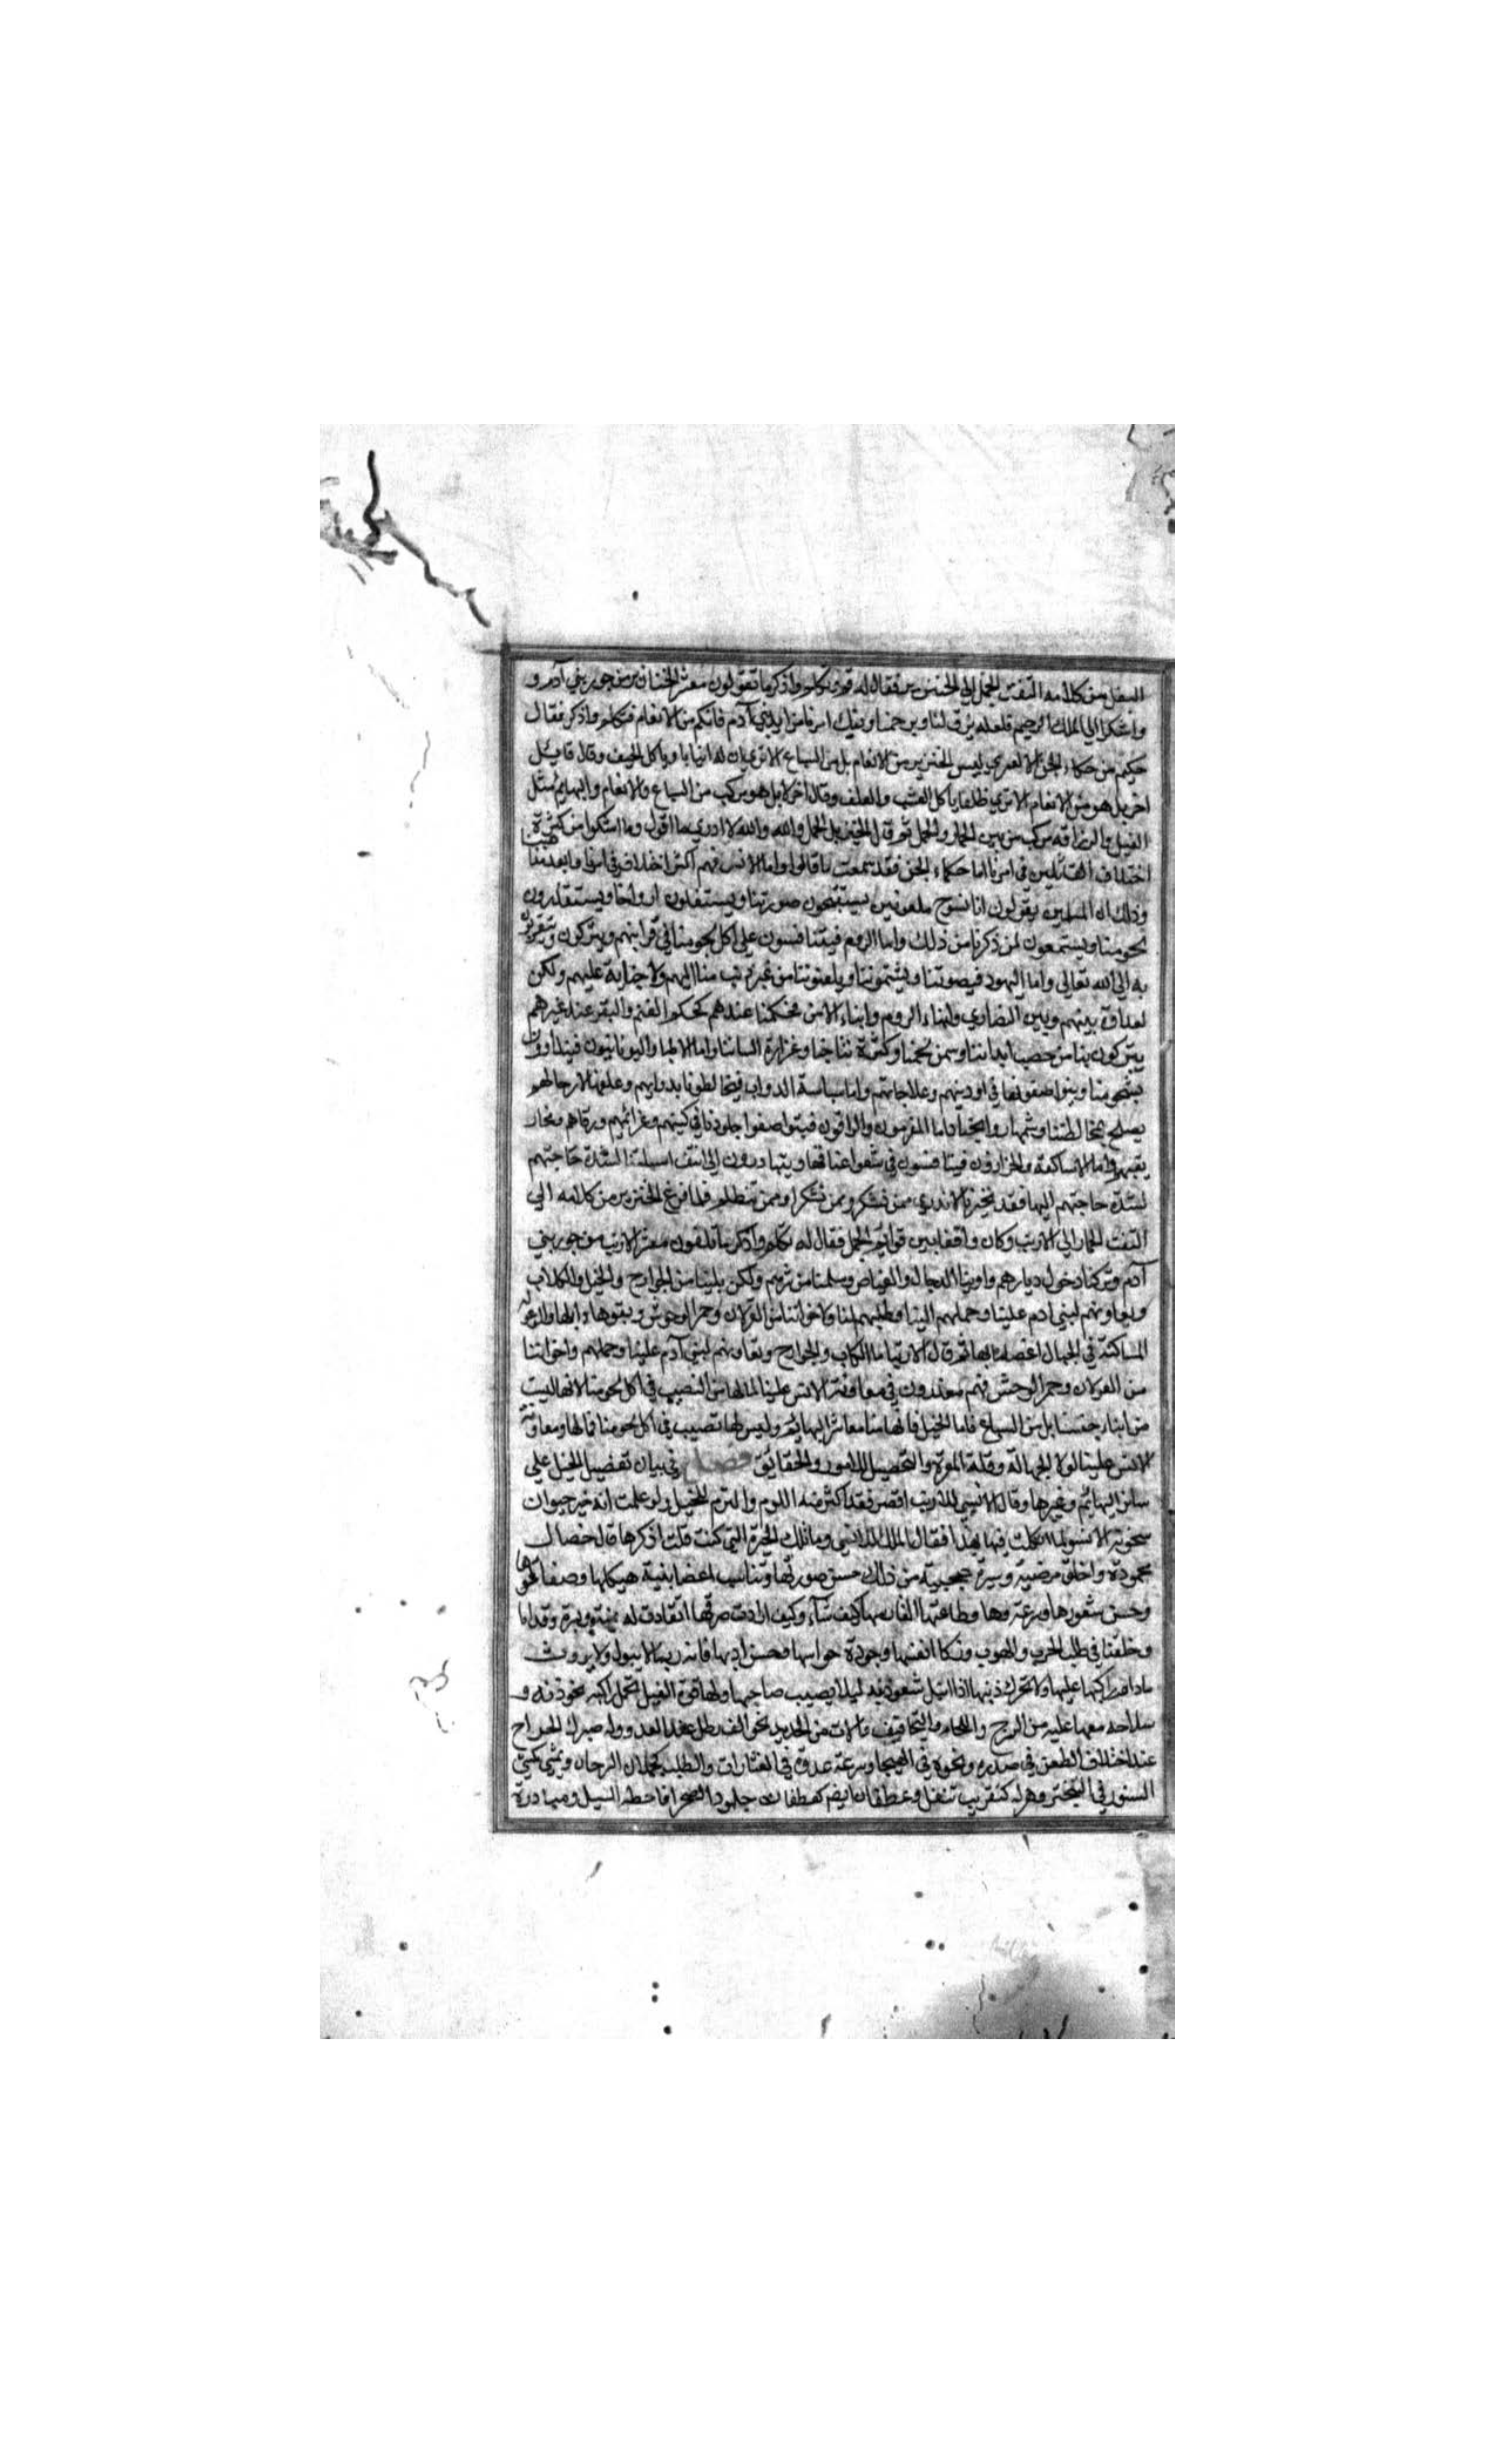 البغل من كلامه التفت الجمل الى الخنزير فقال له قم وتكلم واذكر ما تقولون معشر الخنازير من جور بني آدم و
واشكرا الي الملك الرحيم فلعله يرق لنا ويرحمنا ويفك اسرنا من ايدي بني آدم فانكم من الانعام فتكلم واذكر فقال
حكيم من حكماء الجن لا لعمري ليس الخنزير من الانعام بل من السباع الا تري ان له انيابا وياكل الجيف وقال قايل
اخر بل هو من الانعام الا تري ظلفا ياكل العشب والعلف وقال اخر لا بل هو مركب من السباع والانعام والبهايم مثل
الفيل والزرافة مركب من بين الحمار والجمل ثم قال الخنزير للجمل والله والله لا ادري ما اقول وما اشكوا من كثرة
اختلاف القائلين في امرنا اما حكماء الجن فقد سمعت ما قالوا واما الانس فهم اكثر اختلاف في امرنا وابعد مذهبا
وذلك ان المسلمين يقولون انا نسوخ ملعونين يستقبحون صورتنا ويستثقلون ارواحنا ويستقذرون
لحومنا ويستمعون لمن ذكرنا من ذلك واما الروم فيتنافسون علي اكل لحومنا في قرابينهم ويتبركون ويتقربون
به الي الله تعالى واما اليهود فيصوتنا ويشتموننا ويلعنوننا من غير ذنب منا اليهم ولا جناية عليهم ولكن
لعداوة بينهم وبين النصاري وابناء الروم وابناء الامن فحكمنا عندهم كحكم الغنم والبقر عند غيرهم
يتبركون بنا من خصب ابداننا وسمن لحمنا وكثرة نتاجنا وغزارة الباننا واما الاطبا واليونانيون فيتداوون
بشحومنا ويتواصفونها في ادويتهم وعلاجاتهم واما ساسة الدواب فيخالطونا بدوابهم وعلفهم لان حالهم
يصلح بمخالطتنا وشمها روايحنا واما المعزمون والراقون فيتواصفوا جلودنا في كتبهم وعزايمهم ورقاهم ومخار
يقبهم واما الاساكفة والخرازون فيتنافسون في شعر اعناقنا ويتبادرون الى انتف اسبلتنا لشدة حاجتهم
لشدة حاجتهم اليها فقد تحيرنا لا ندري ممن نشكر وممن نشكوا وممن نتظلم فلما فرغ الخنزير من كلامه الي
التفت الحمار الي الارنب وكان واقفا بين قوايم الجمل فقال له تكلم واذكر ما تلقون معشر الارنب من جور بني
آدم وتركنا دخول ديارهم واوينا الدحال والغياض وسلمنا من شرهم ولكن بلينا من الجوارح والخيل والكلاب
ويعاونهم لبني ادم علينا وحملهم الينا وطلبهم لنا ولاخواتنا من الغزلان وحمر الوحوش وبقرها وابلها والوعول
الساكنة في الجبال اعتصاما بها ثم قال الارنب اما الكلاب والجوارح وتعاونهم لبني آدم علينا وحملهم واخواتنا
من الغزلان وحمر الوحش فهم معذورون في معاونة الانس علينا لما لها من النصيب في اكل لحومنا لانها ليست
من ابناء جنسنا بل من السباع فاما الخيل فانها منا معاشر البهايم وليس لها نصيب في اكل لحومنا فمالها ومعاونة
الانس علينا لولا الجهالة وقلة المعرفة والتحصيل للامور والحقائق فصل في بيان تفضيل الخيل علي
سائر البهائم وغيرها وقال الانسي للارنب اقصر فقد اكثرت اللوم والذم للخيل ولو علمت انه خير حيوان
سخرته الانس لما تكلمت فيها بهذا فقال الملك للانسي وما تلك الخيرة التي كنت قلت اذكرها قال خصال
محمودة واخلاق مرضية وسيرة عجيبة من ذلك حسن صورتها وتناسب اعضاء بنية هيكلها وصفاء لونها
وحسن شعورها وسرعة عدوها وطاعتها لفارسها كيف شاء وكيف ارادت صرفها انقادت له يمنة ويسرة وقداما
وخلفا في طلب الحرب والهرب وذكاء انفسها وجودة حواسها وحسن ادبها فانه ربما لا يبول ولا يروث
مادام راكبها عليها ولا تحرك ذنبها اذا ابتل شعور ذنبه ليلا يصيب صاحبها ولها قوة الفيل يحمل راكبه بخوذته و
سلاحه معما عليه من السرج واللجام والتجافيف والات من الحديد نحو الف رطل عند العدو وله صبر الحمار
عند اختلاف الطعن في صدره ونحوه في الهيجا وسرعة عدوه في الغارات والطلب كحملان السرحان ويمشي كمشي
السنور في التبختر وهرولة كتقريب تتفل وعطفات كعطفات جلمود الصخر اذا حطه السيل ومبادرة